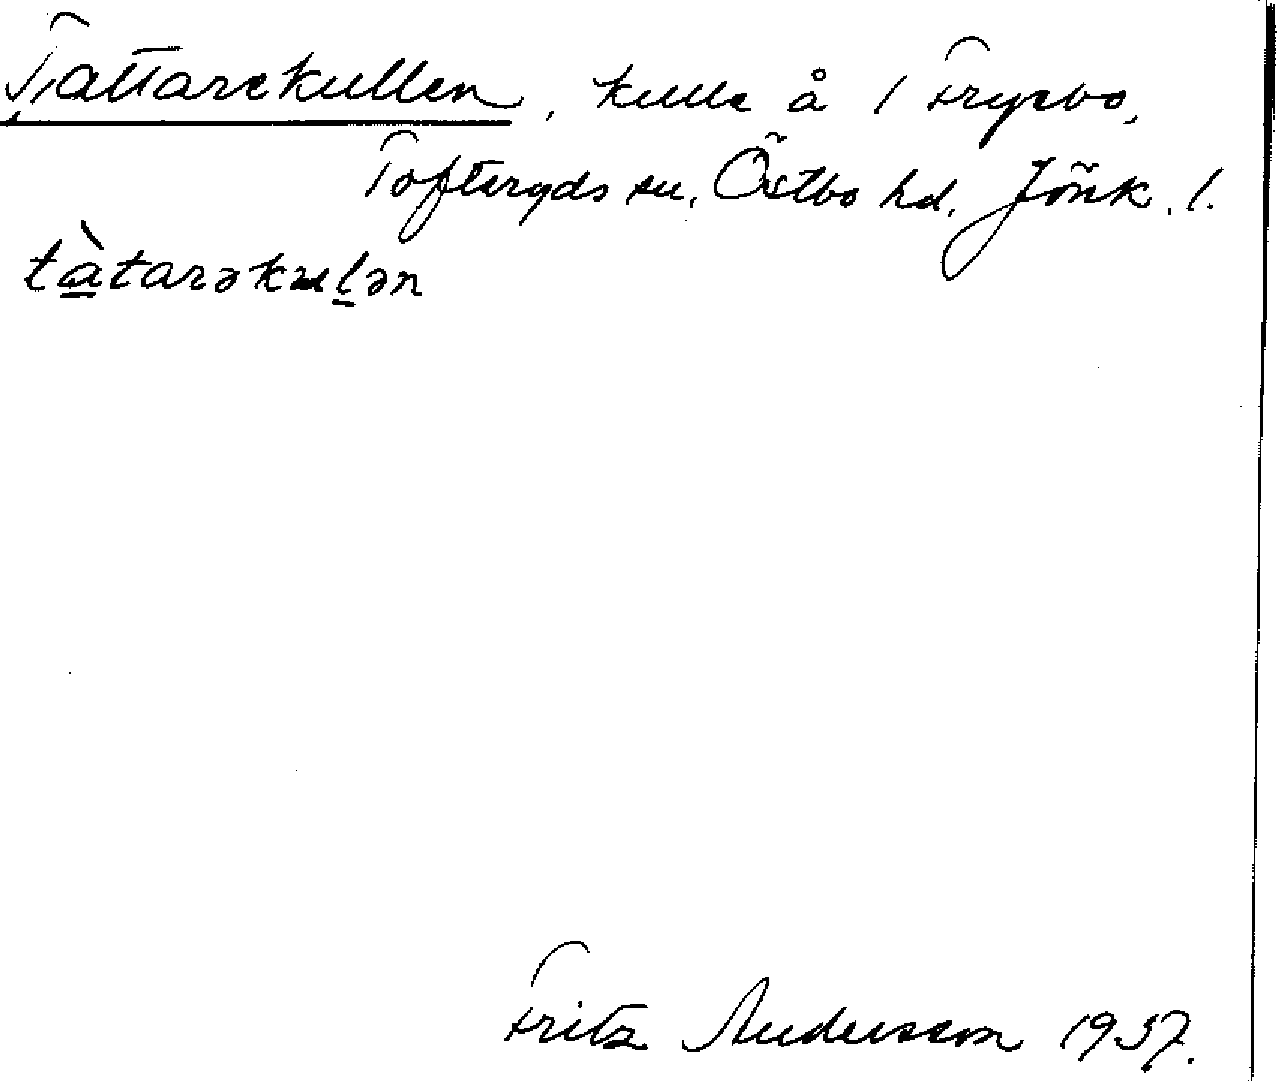 Tattarekullen, kulle å 1 Frysbo,
Tofteryds sn, Östbo hd, Jönk. l.
tàtarəkulən
Fritz Andersson 1937.